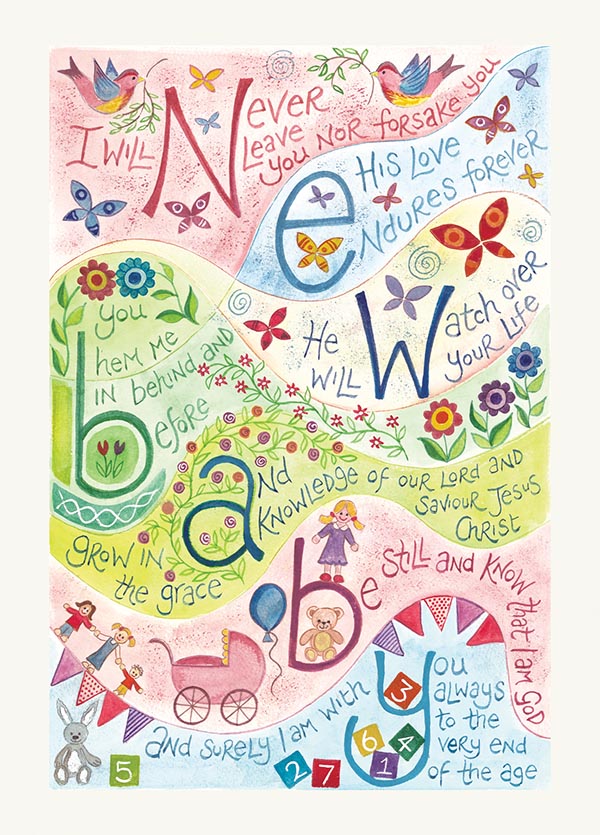 I WILL NEVER
LEAVE
YOU NOR FORSAKE YOU
HIS LOVE
ENDURES FOREVER
He WILL Watch over
YOUR LIFE
you
hem me
in behind and
before
GROW IN
the grace
aND
KNOWLEDGE OF OUR LORD AND
SAVIOUR JESUS
CHRIST
be STILL AND KNOW THAT I AM GOD
AND SURELY I AM WITH you
always
to the
very end
of the age
3
6 4
5 2 7 1